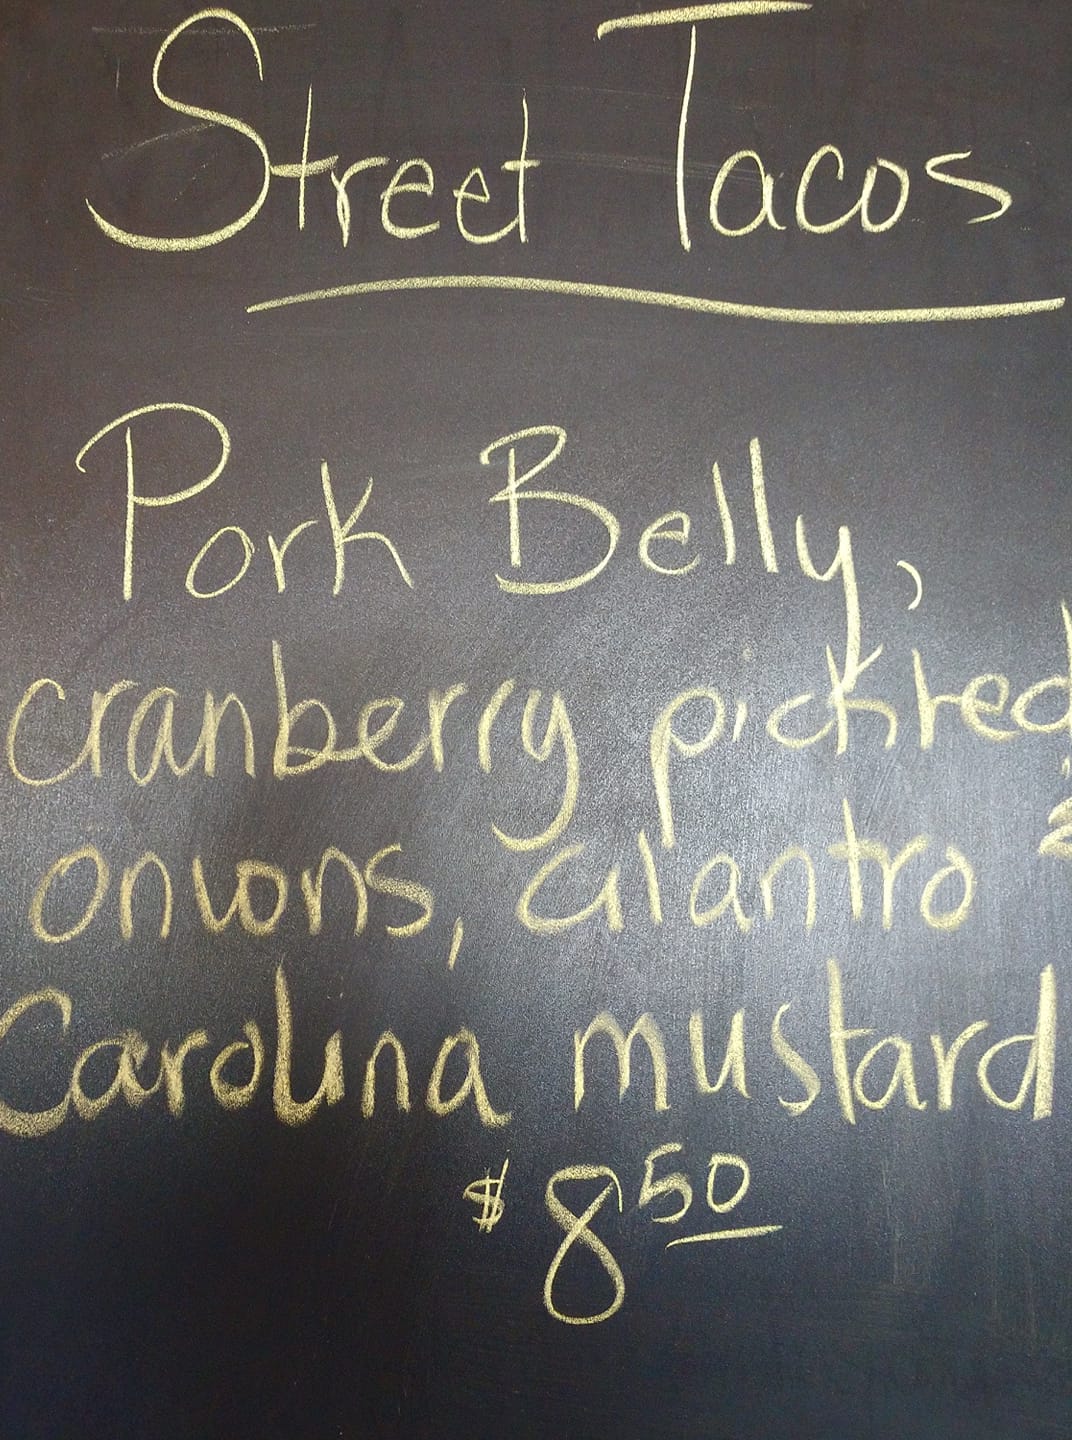 Street Tacos
Pork Belly,
cranberry pickled
onions, cilantro &
Carolina mustard
$8.50